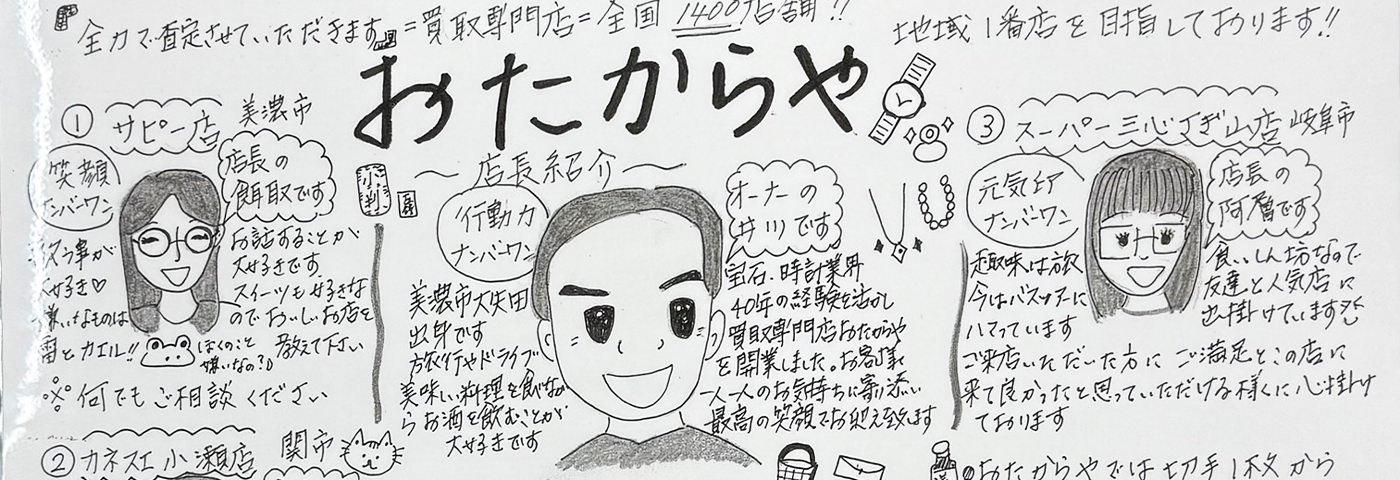 全力で査定させていただきます
=買取専門店=全国1400店舗!!
地域1番店を目指しております!!
おたからや
～店長紹介～
① サピー店 美濃市
笑顔
ナンバーワン
店長の
餌取です
事が
大好き♡
嫌いなものは
雷とカエル!!
お話することが
大好きです
スイーツも好きな
のでおいしいお店を
教えて下さい
ぼくのこと
嫌いなの?
※何でもご相談ください
② カネスエ小瀬店 関市
小判
行動力
ナンバーワン
美濃市大矢田
出身です
旅行やドライブ
美味しい料理を食べなが
らお酒を飲むことが
大好きです
オーナーの
井川です
宝石・時計業界
40年の経験を活かし
買取専門店おたからや
を開業しました。お客様
一人一人のお気持ちに寄り添い
最高の笑顔でお迎え致します
③ スーパー三心さぎ山店 岐阜市
元気印
ナンバーワン
店長の
阿層です
趣味は旅
今はバスツアーに
ハマっています
食いしん坊なので
友達と人気店に
出掛けています
ご来店いただいた方に ご満足とこの店に
来て良かったと思っていただける様に心掛け
ております
おたからやでは切手1枚から